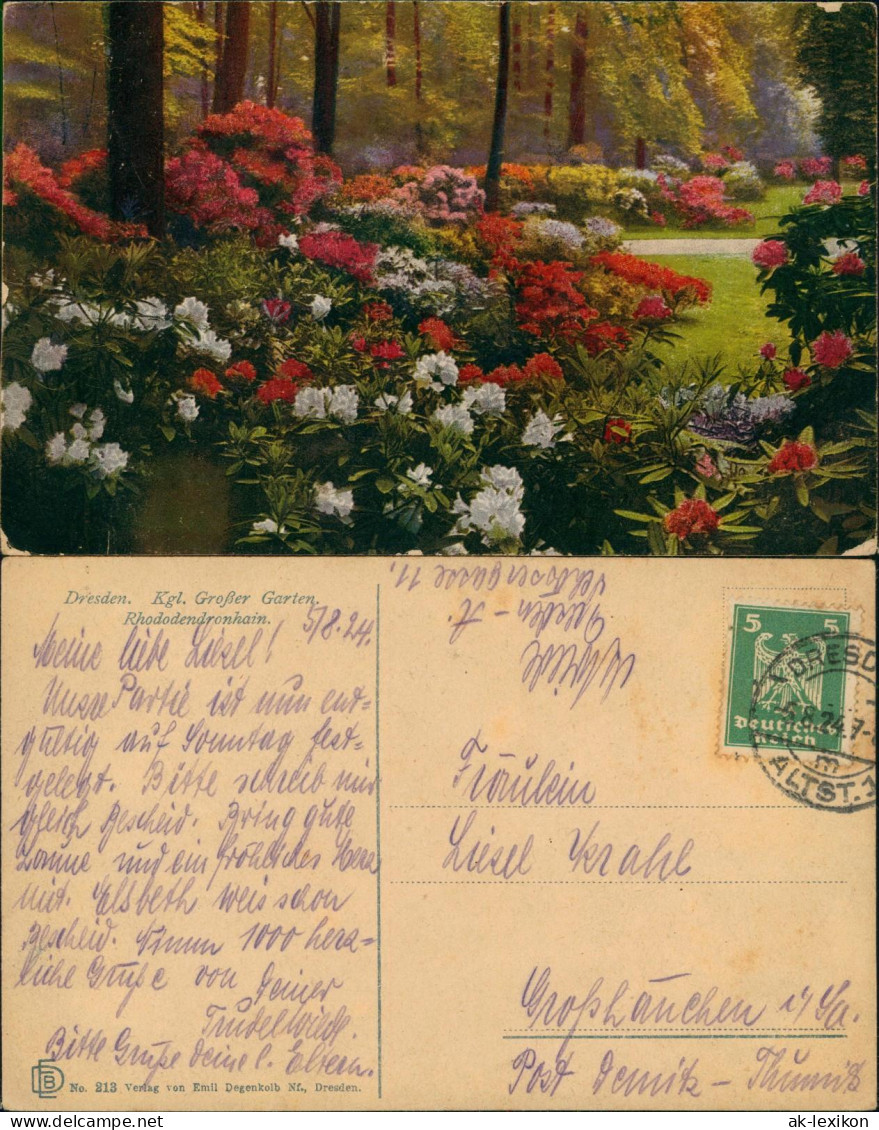 Dresden. Kgl. Großer Garten.
Rhododendronhain.
5/8.24.
Meine liebe Liesel!
Unsre Partie ist nun end=
gültig auf Sonntag fest=
gelegt. Bitte schreib mir
gleich Bescheid. Bring gute
Laune und ein fröhliches Herz
mit. Elsbeth weis schon
Bescheid. Nimm 1000 herz=
liche Grüße von Deiner
Trudel Wildt.
Bitte Grüße deine l. Eltern.
No. 213 Verlag von Emil Degenkolb Nf., Dresden.
Dresden - A.
11.
5 5
Deutsches
Reich
DRESD
-5.8.24.7-
m
ALTST.1
Fräulein
Liesel Krahl
Großhänchen i/Sa.
Post Demitz - Thumitz
ak-lexikon